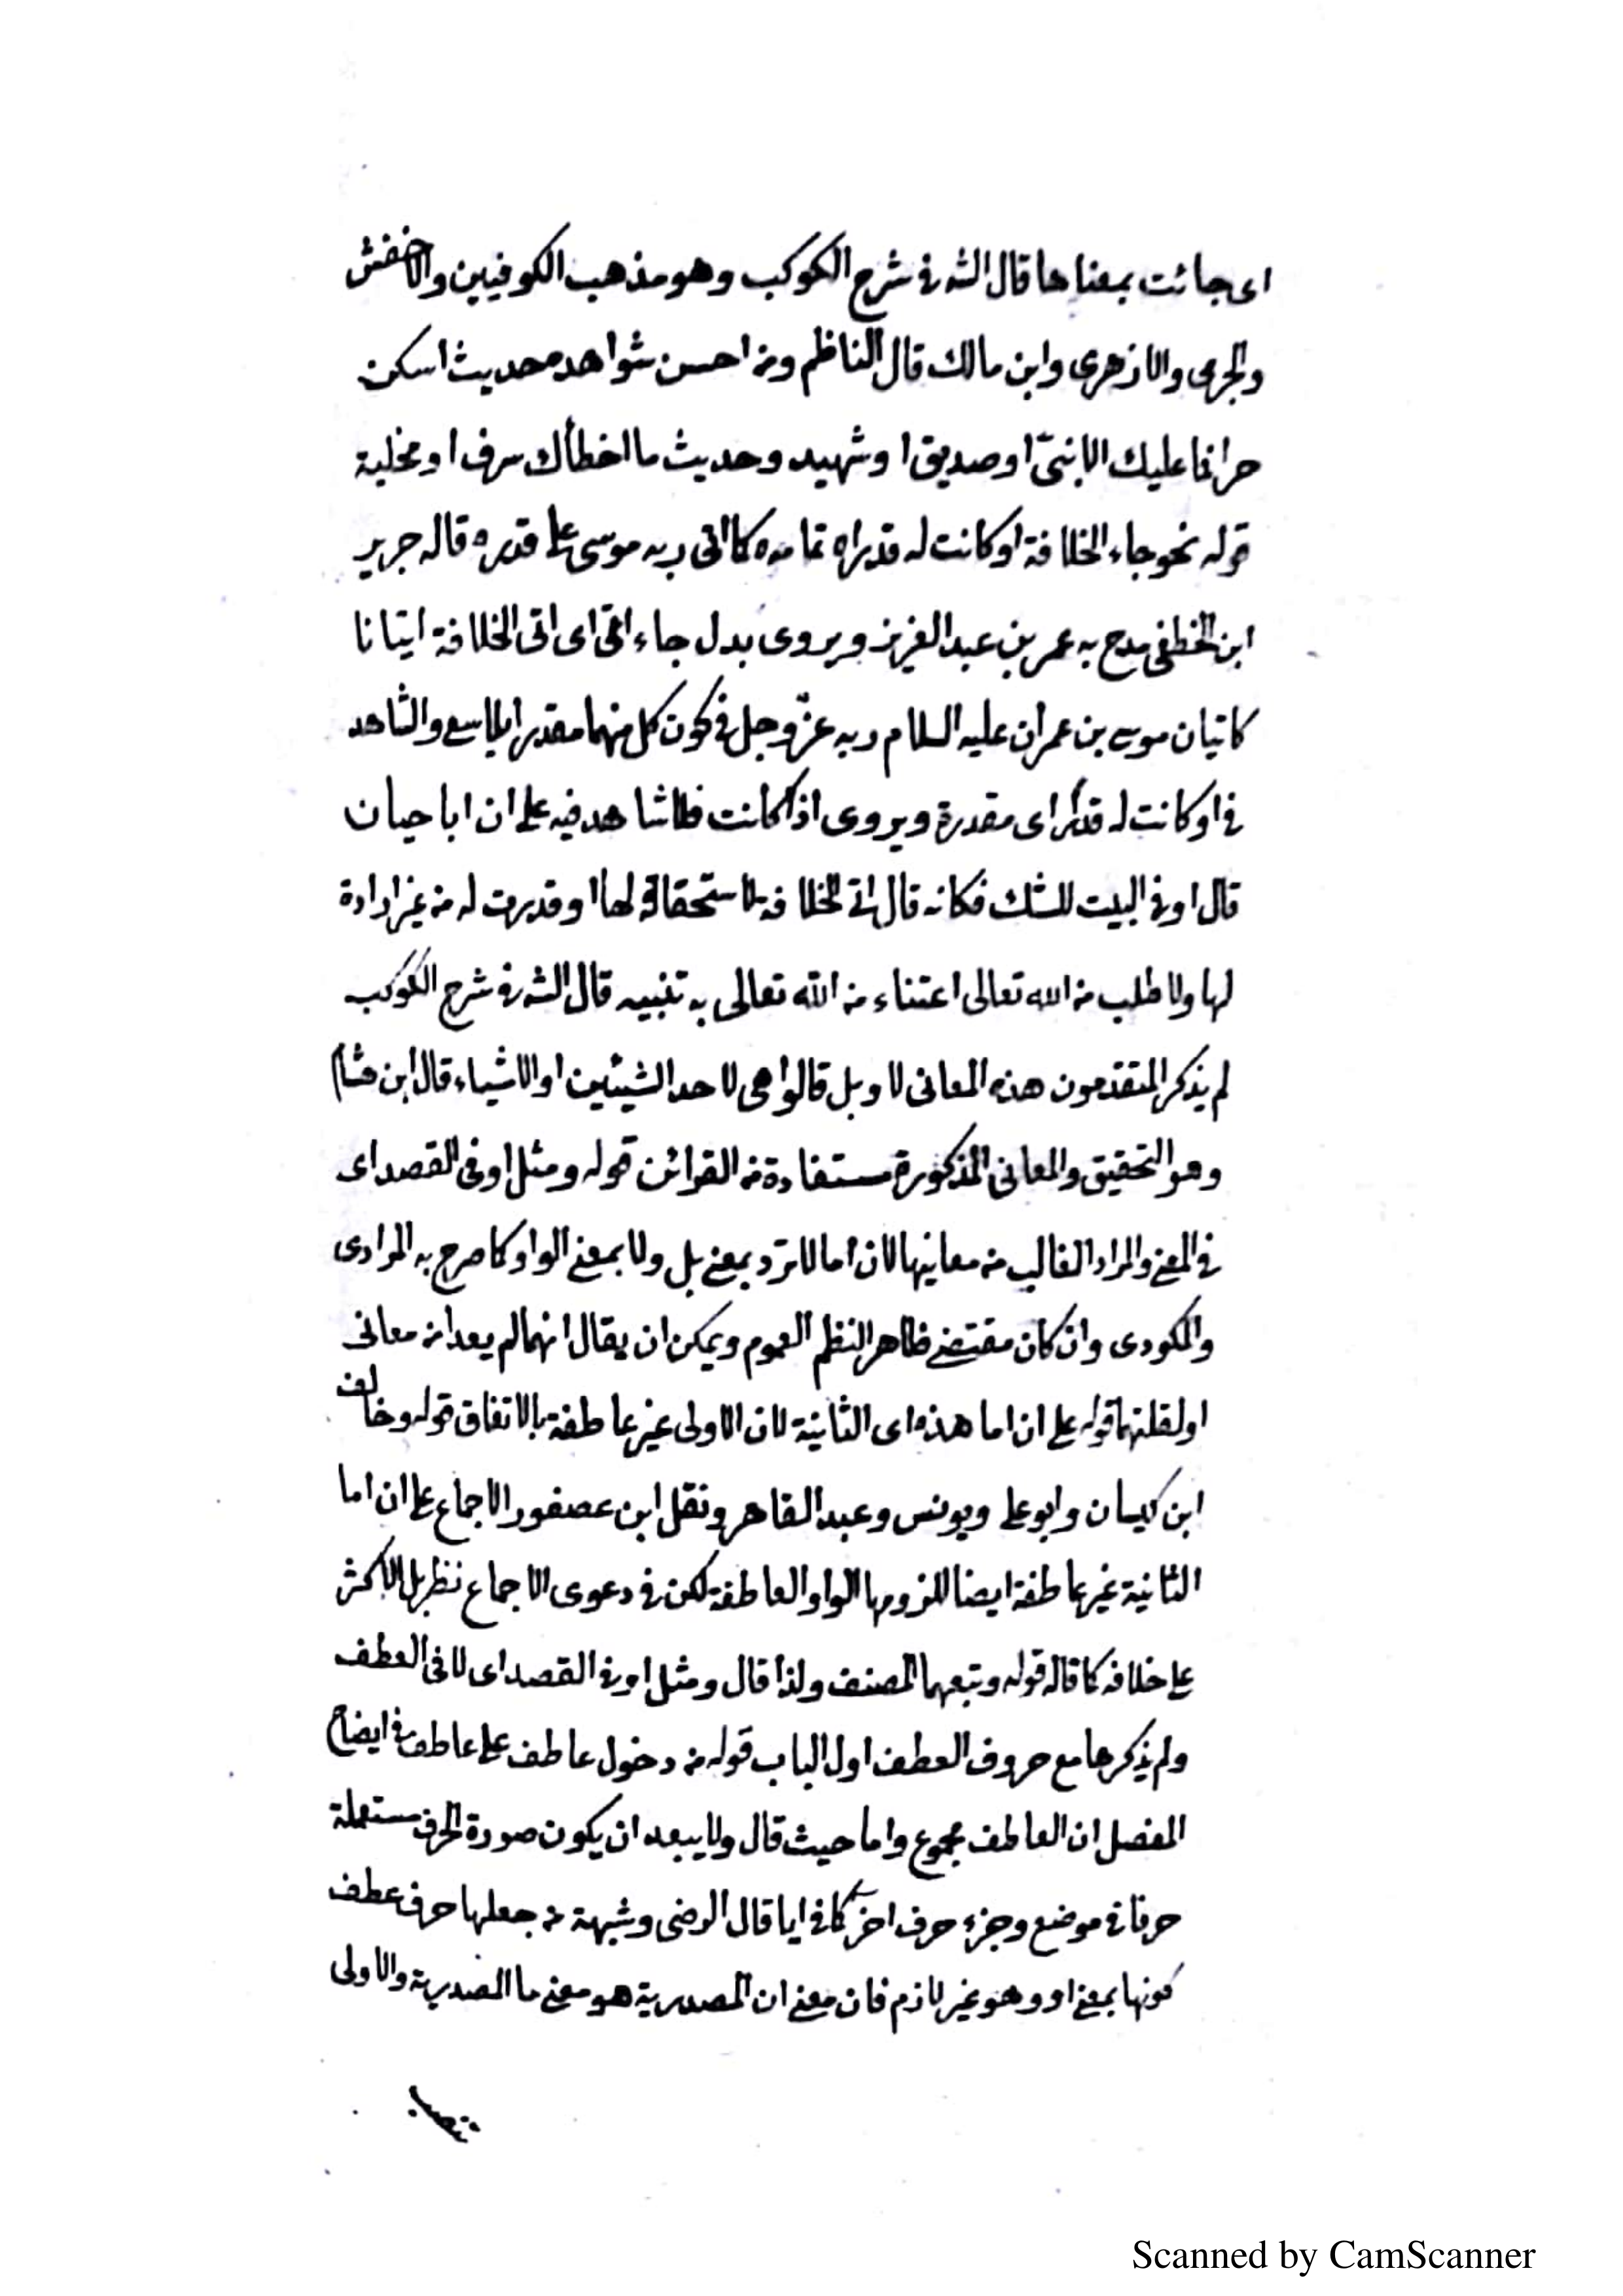 اى جائت بمعناها قال الشه فى شرح الكوكب وهو مذهب الكوفيين والاخفش
والجرمى والازهرى وابن مالك قال الناظم ومن احسن شواهده حديث اسكن
حرا فما عليك الا نبىّ او صديق او شهيد وحديث ما اخطأك سرف او مخلية
قوله نحو جاء الخلافة او كانت له قدرا ه تمامه ه كما اتى ربه موسى على قدر ه قاله جرير
ابن الخطفى مدح به عمر بن عبد العزيز ويروى بدل جاء اتى اى اتى الخلافة اتيانا
كاتيان موسى بن عمران عليه السلام ربه عزّ وجل فى كون كل منهما مقدرا والشاهد
فى او كانت له قدرا اى مقدرة ويروى اذ كانت فلا شاهد فيه على ان ابا حيان
قال او فى البيت للشك فكانه قال اتى الخلافة لاستحقاقه لها او قدرت له من غير ارادة
لها ولا طلب من الله تعالى اعتناء من الله تعالى به تنبيه قال الشه فى شرح الكوكب
لم يذكر المتقدمون هذه المعانى لاو بل قالوا هى لاحد الشيئين او الاشياء قال ابن هشام
وهو التحقيق والمعانى المذكورة مستفادة من القرائن قوله ومثل او فى القصد اى
فى المعنى والمراد الغالب من معانيها لان اما لا ترد بمعنى بل ولا بمعنى الواو كما صرح به المرادى
والمكودى وان كان مقتضى ظاهر النظم العموم ويمكن ان يقال انهما لم يعدا من معانى
او لقلتهما قوله على ان اما هذه اى الثانية لان الاولى غير عاطفة بالاتفاق قوله وخالف
ابن كيسان وابو على ويونس وعبد القاهر ونقل ابن عصفور الاجماع على ان اما
الثانية غير عاطفة ايضا للزومها الواو العاطفة لكن فى دعوى الاجماع نظر بل الاكثر
على خلافه كما قاله قوله وتبعهما المصنف ولذا قال ومثل او فى القصد اى لا فى العطف
ولم يذكرها مع حروف العطف اول الباب قوله من دخول عاطف على عاطف فى ايضاح
المفصل ان العاطف مجموع واما حيث قال ولا يبعد ان يكون صورة الحرف مستعملة
حرفا فى موضع وجزء حرف اخر كما فى ايا قال الرضى وشبهة من جعلها حرف عطف
كونها بمعنى او وهو غير لازم فان معنى ان المصدرية هو معنى ما المصدرية والاولى
تنصب